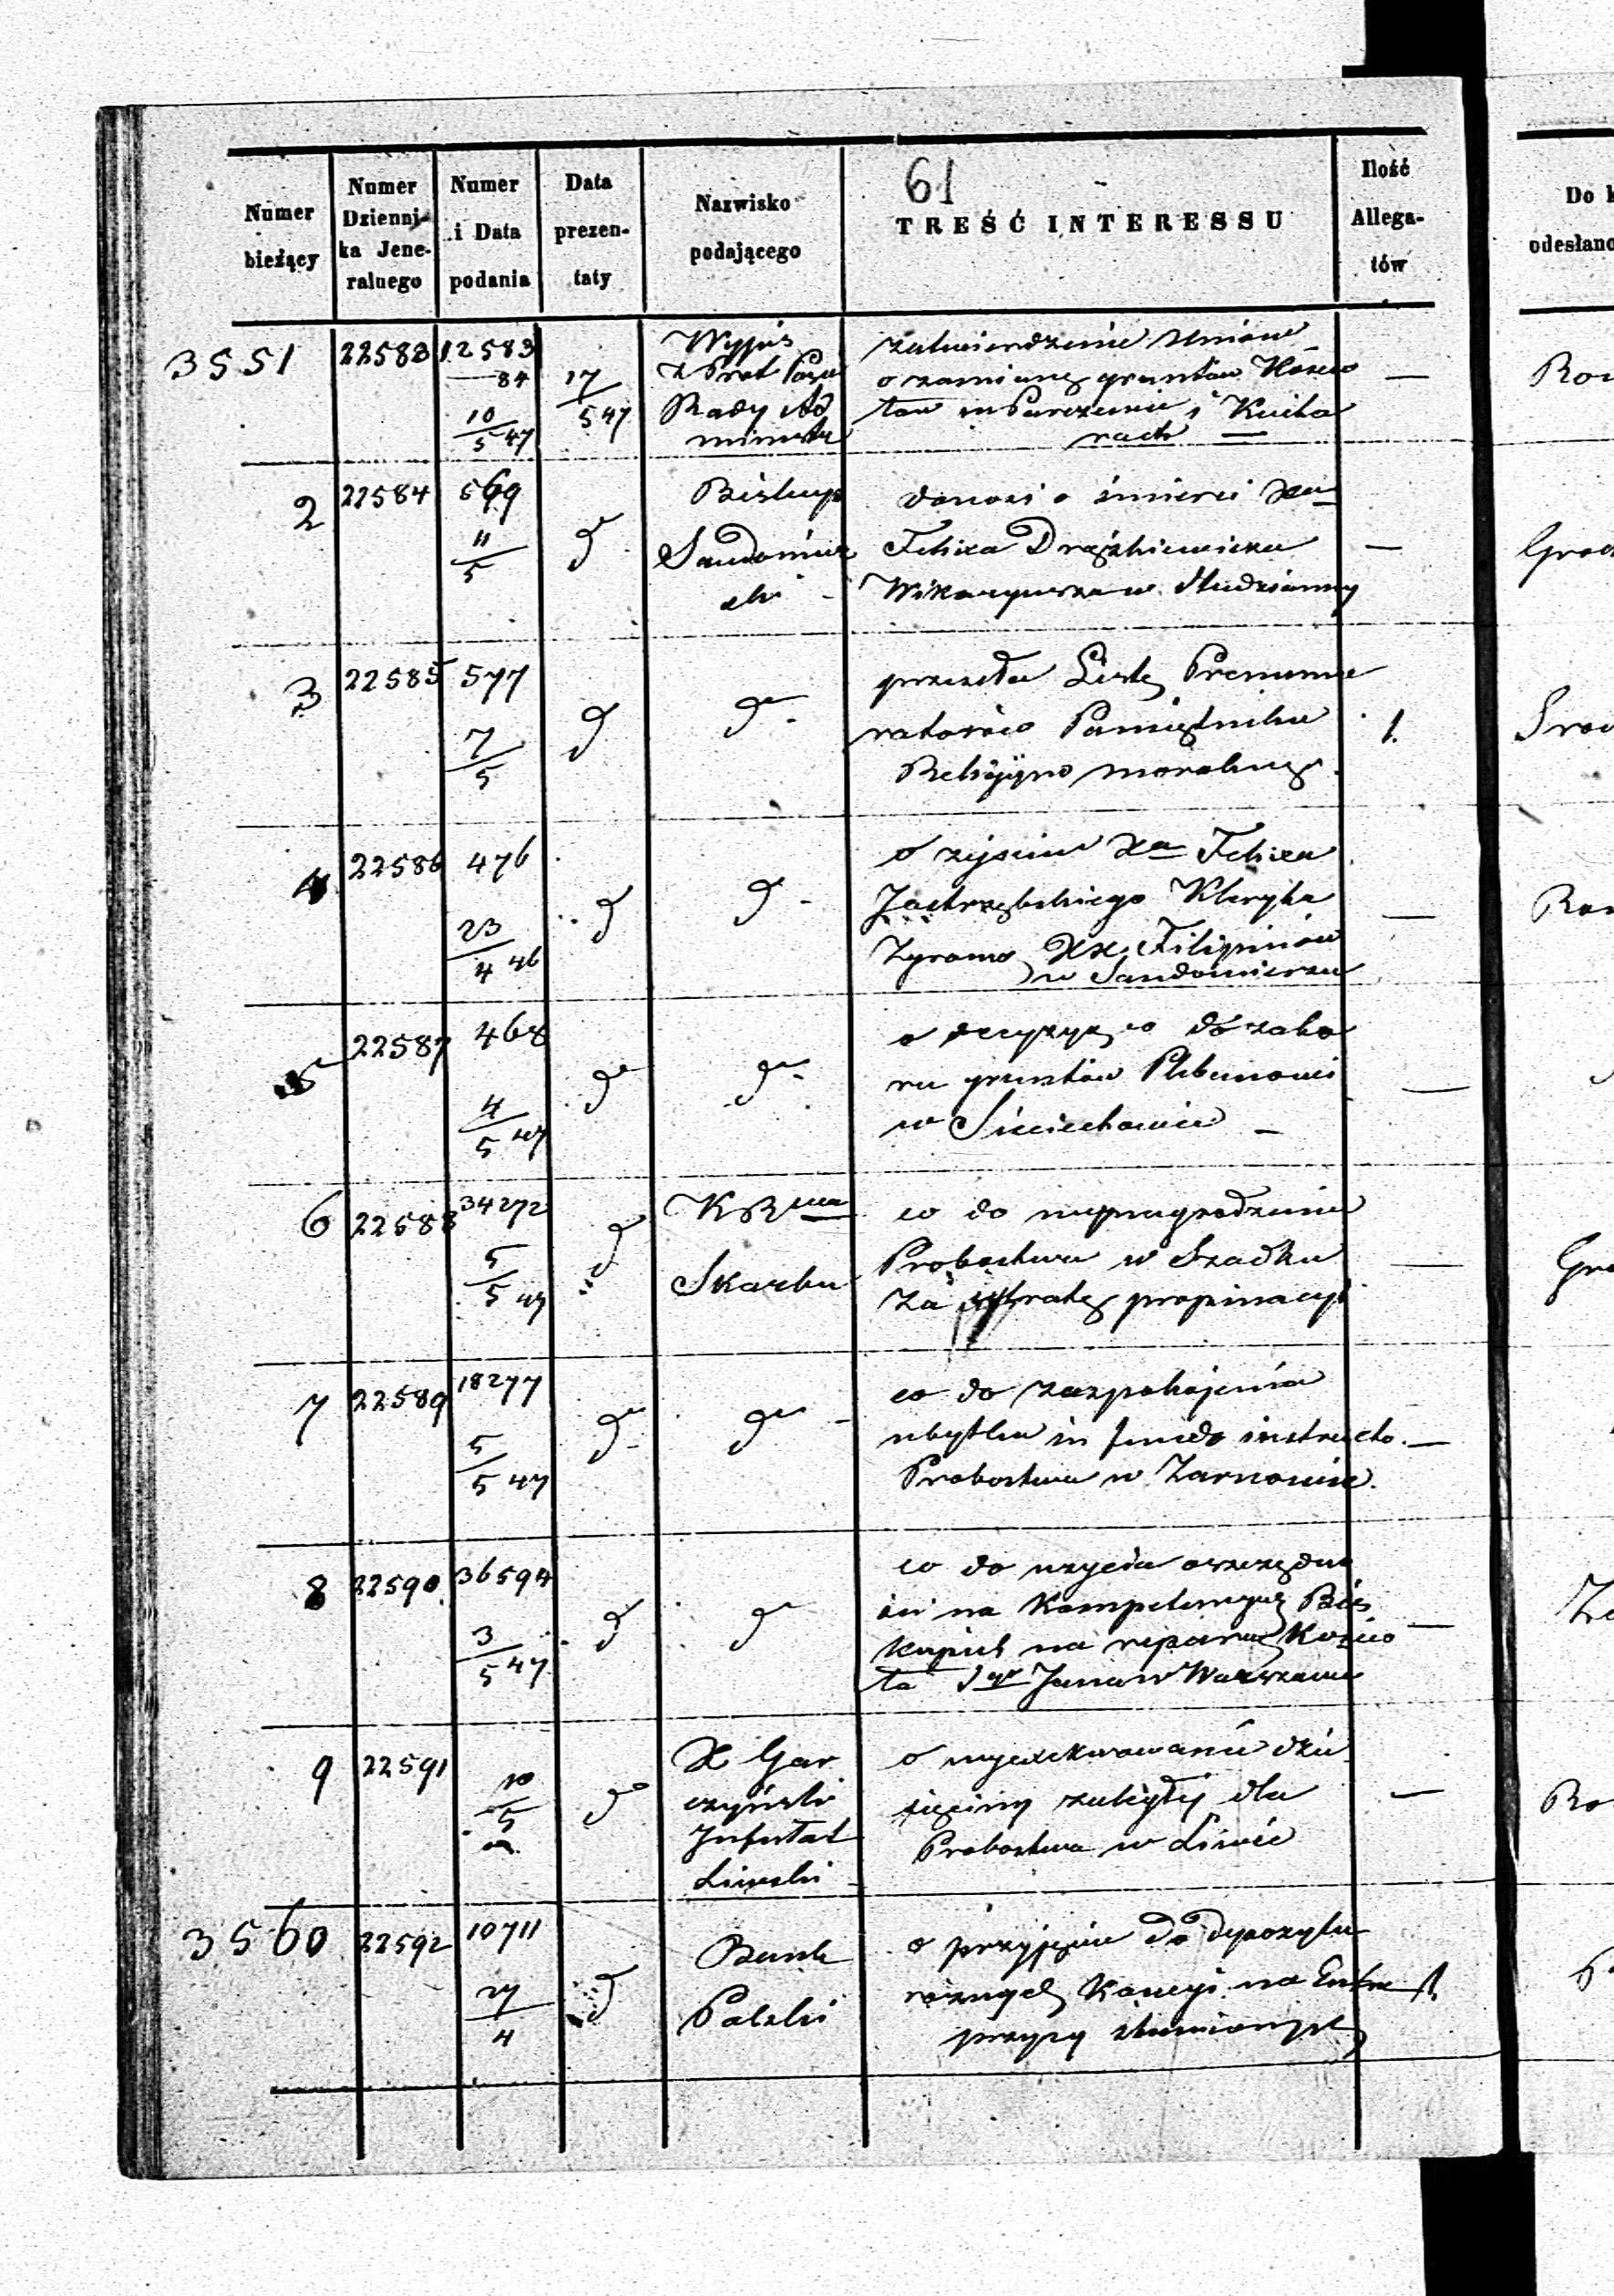 61
Numer bieżący
Numer Dziennika Jene- ralnego
Numer i Data podania
Data prezen- taty
Nazwisko podającego
TREŚĆ INTERESSU
Ilość Allega- tów
Do k
odesłano
3551 22583 12583
84
10/5 47
17/5 47
Wypis
z Prot Posie
Rady Ad
ministr
zatwierdzenie Umów
o zamianę gruntów Kościo
łów w Parczewie i Kucha
rach —
—
2 22584 569
11/5
do
Biskup
Sandomier
ski
donosi o śmierci Xa
Felixa Drążkiewicza
Wikaryusza w Studzianny
—
3 22585 577
7/5
d
do
przesyła Listę Prenume
ratorów Pamiętnika
Religijno moralnego
1.
4 22586 476
23/4 46
d
do
o zejściu Xa Felixa
Jastrzębskiego Kleryka
Zgromo XX Filipinów
w Sandomierzu
—
5 22587 468
4/5 47
do
do
o decyzyę co do zabo
ru gruntów Plebanowi
w Sieciechowie —
—
6 22588 34272
5/5 47
d
KR
Skarbu
co do wynagrodzenia
Probostwa w Szadku
za utratę propinacyi
—
7 22589 18277
5/5 47
do
do
co do zaspokojenia
ubytku in fundo instructo
Probostwa w Żarnowie.
—
8 22590 36594
3/5 47
d
do
co do użycia oszczędno
ści na Kompetencyi Bis
kupiej na reparac Kościo
ła Sgo Jana w Warszawie
—
9 22591
10/5
do
X Gar
czyński
Infułat
Liwski
o wyexekwowanie dzie
sięciny zaległej dla
Probostwa w Liwie
—
3560 22592 10711
27/4
d
Bank
Polski
o przyjęcie do depozytu
różnych Kaucyi na Entre
pryzy
1.